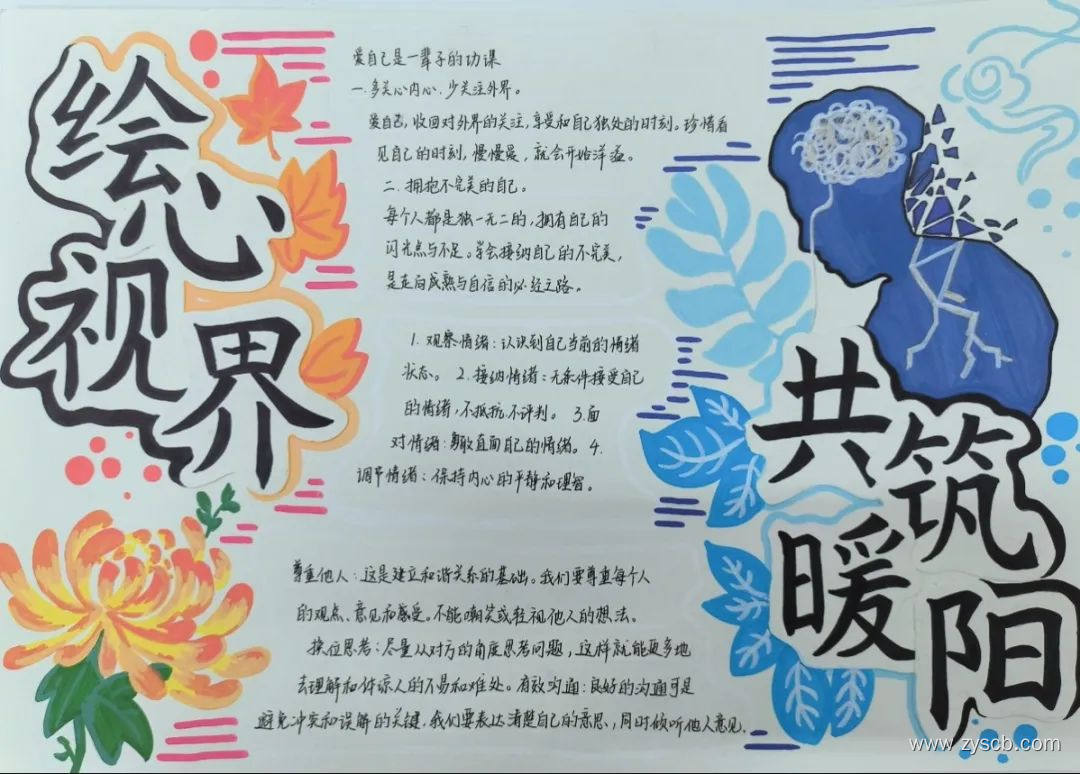 绘心视界
爱自己是一辈子的功课
一.多关心内心.少关注外界。
爱自己,收回对外界的关注,享受和自己独处的时刻。珍惜看
见自己的时刻,慢慢晨,就会开始洋溢。
二.拥抱不完美的自己。
每个人都是独一无二的,拥有自己的
闪光点与不足。学会接纳自己的不完美,
是走向成熟与自信的必经之路。
1.观察情绪:认识到自己当前的情绪
状态。2.接纳情绪:无条件接受自己
的情绪,不抵抗.不评判。3.面
对情绪:勇敢直面自己的情绪。4.
调节情绪:保持内心的平静和理智。
尊重他人:这是建立和谐关系的基础。我们要尊重每个人
的观点、意见和感受。不能嘲笑或轻视他人的想法。
换位思考:尽量从对方的角度思考问题,这样就能更多地
去理解和体谅人的不易和难处。有效沟通:良好的沟通可是
避免冲突和误解的关键,我们要表达清楚自己的意思,同时倾听他人意见.
共筑
暖阳
www.zyscb.com